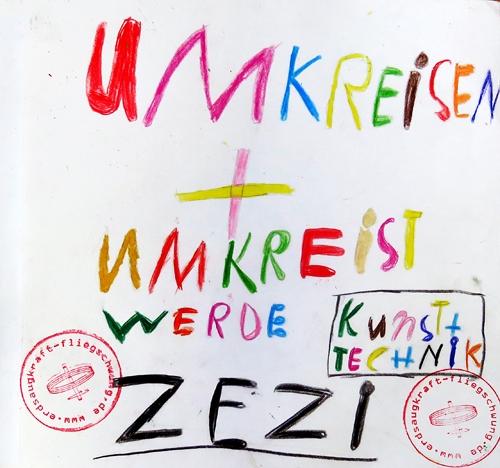 UMKREiSEN
+
UMKREiST
WERDE
KUnST+
TECHNiK
ZEZi
www.erdsaugkraft-fliegschwung.de
www.erdsaugkraft-fliegschwung.de